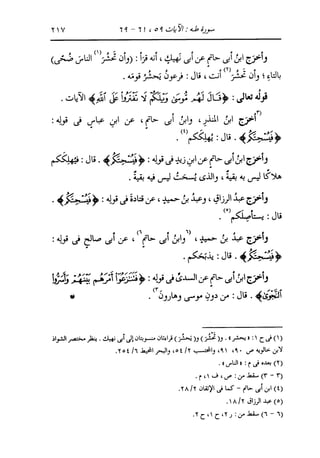 سورة طه : الآيات ٥٩ ، ٦١ - ٦٢
٢١٧
وأخرج ابنُ أبى حاتمٍ عن أبى نَهيكٍ ، أنه قرأ : (وأن تَحشُرَ(١) الناسَ ضُحًى)
بالتاءِ ؛ وأن تَحشُرَ(٢) أنت ، قال : فرعونُ يَحشُرُ قومَه .
قولُه تعالى : ﴿ قَالَ لَهُم مُّوسَىٰ وَيْلَكُمْ لَا تَفْتَرُوا۟ عَلَى ٱللَّهِ ﴾ الآيات .
(٣)أخرَج ابنُ المنذرِ ، وابنُ أبى حاتمٍ ، عن ابنِ عباسٍ فى قولِه :
﴿ فَيُسْحِتَكُم ﴾ . قال : يُهلِكَكم(٤) .
وأخرج ابنُ أبى حاتمٍ عن ابنِ زيدٍ فى قولِه : ﴿ فَيُسْحِتَكُم ﴾ . قال : فيُهلِكَكم
هلاكًا ليس به بقيةٌ ، والذى يُسحَتُ ليس فيه بقيةٌ .
وأخرج عبدُ الرزاقِ ، وعبدُ بنُ حميدٍ ، عن قتادةَ فى قولِه : ﴿ فَيُسْحِتَكُم ﴾ .
قال : يستأصِلَكم(٥) .
وأخرج عبدُ بنُ حميدٍ ، (٦)وابنُ أبى حاتمٍ(٦) ، عن أبى صالحٍ فى قولِه :
﴿ فَيُسْحِتَكُم ﴾ . قال : يذبَحَكم .
وأخرج ابنُ أبى حاتمٍ عن السدىِّ فى قولِه : ﴿ فَتَنَٰزَعُوٓا۟ أَمْرَهُم بَيْنَهُمْ وَأَسَرُّوا۟
ٱلنَّجْوَىٰ ﴾ . قال : من دونِ موسى وهارونَ(٣) .
(١) فى ح ١ : « يحشر » . و(تَحْشُر) و(يَحْشُر) قراءتان منسوبتان إلى أبى نهيك . ينظر مختصر الشواذ
لابن خالويه ص ٩٠ ، ٩١ ، والمحتسب ٢/ ٥٤ ، والبحر المحيط ٦/ ٢٥٤ .
(٢) بعده فى م : « الناس » .
(٣ - ٣) سقط من : ص ، ف ١ ، م .
(٤) ابن أبى حاتم - كما فى الإتقان ٢/ ٢٨ .
(٥) عبد الرزاق ٢/ ١٨ .
(٦ - ٦) سقط من : ر ٢ ، ح ١ ، ح ٢ .